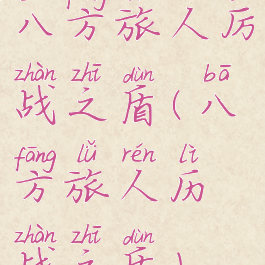 八方旅人厉
zhàn zhī dùn bā
战之盾(八
fāng lǚ rén lì
方旅人历
zhàn zhī dùn
战之盾)